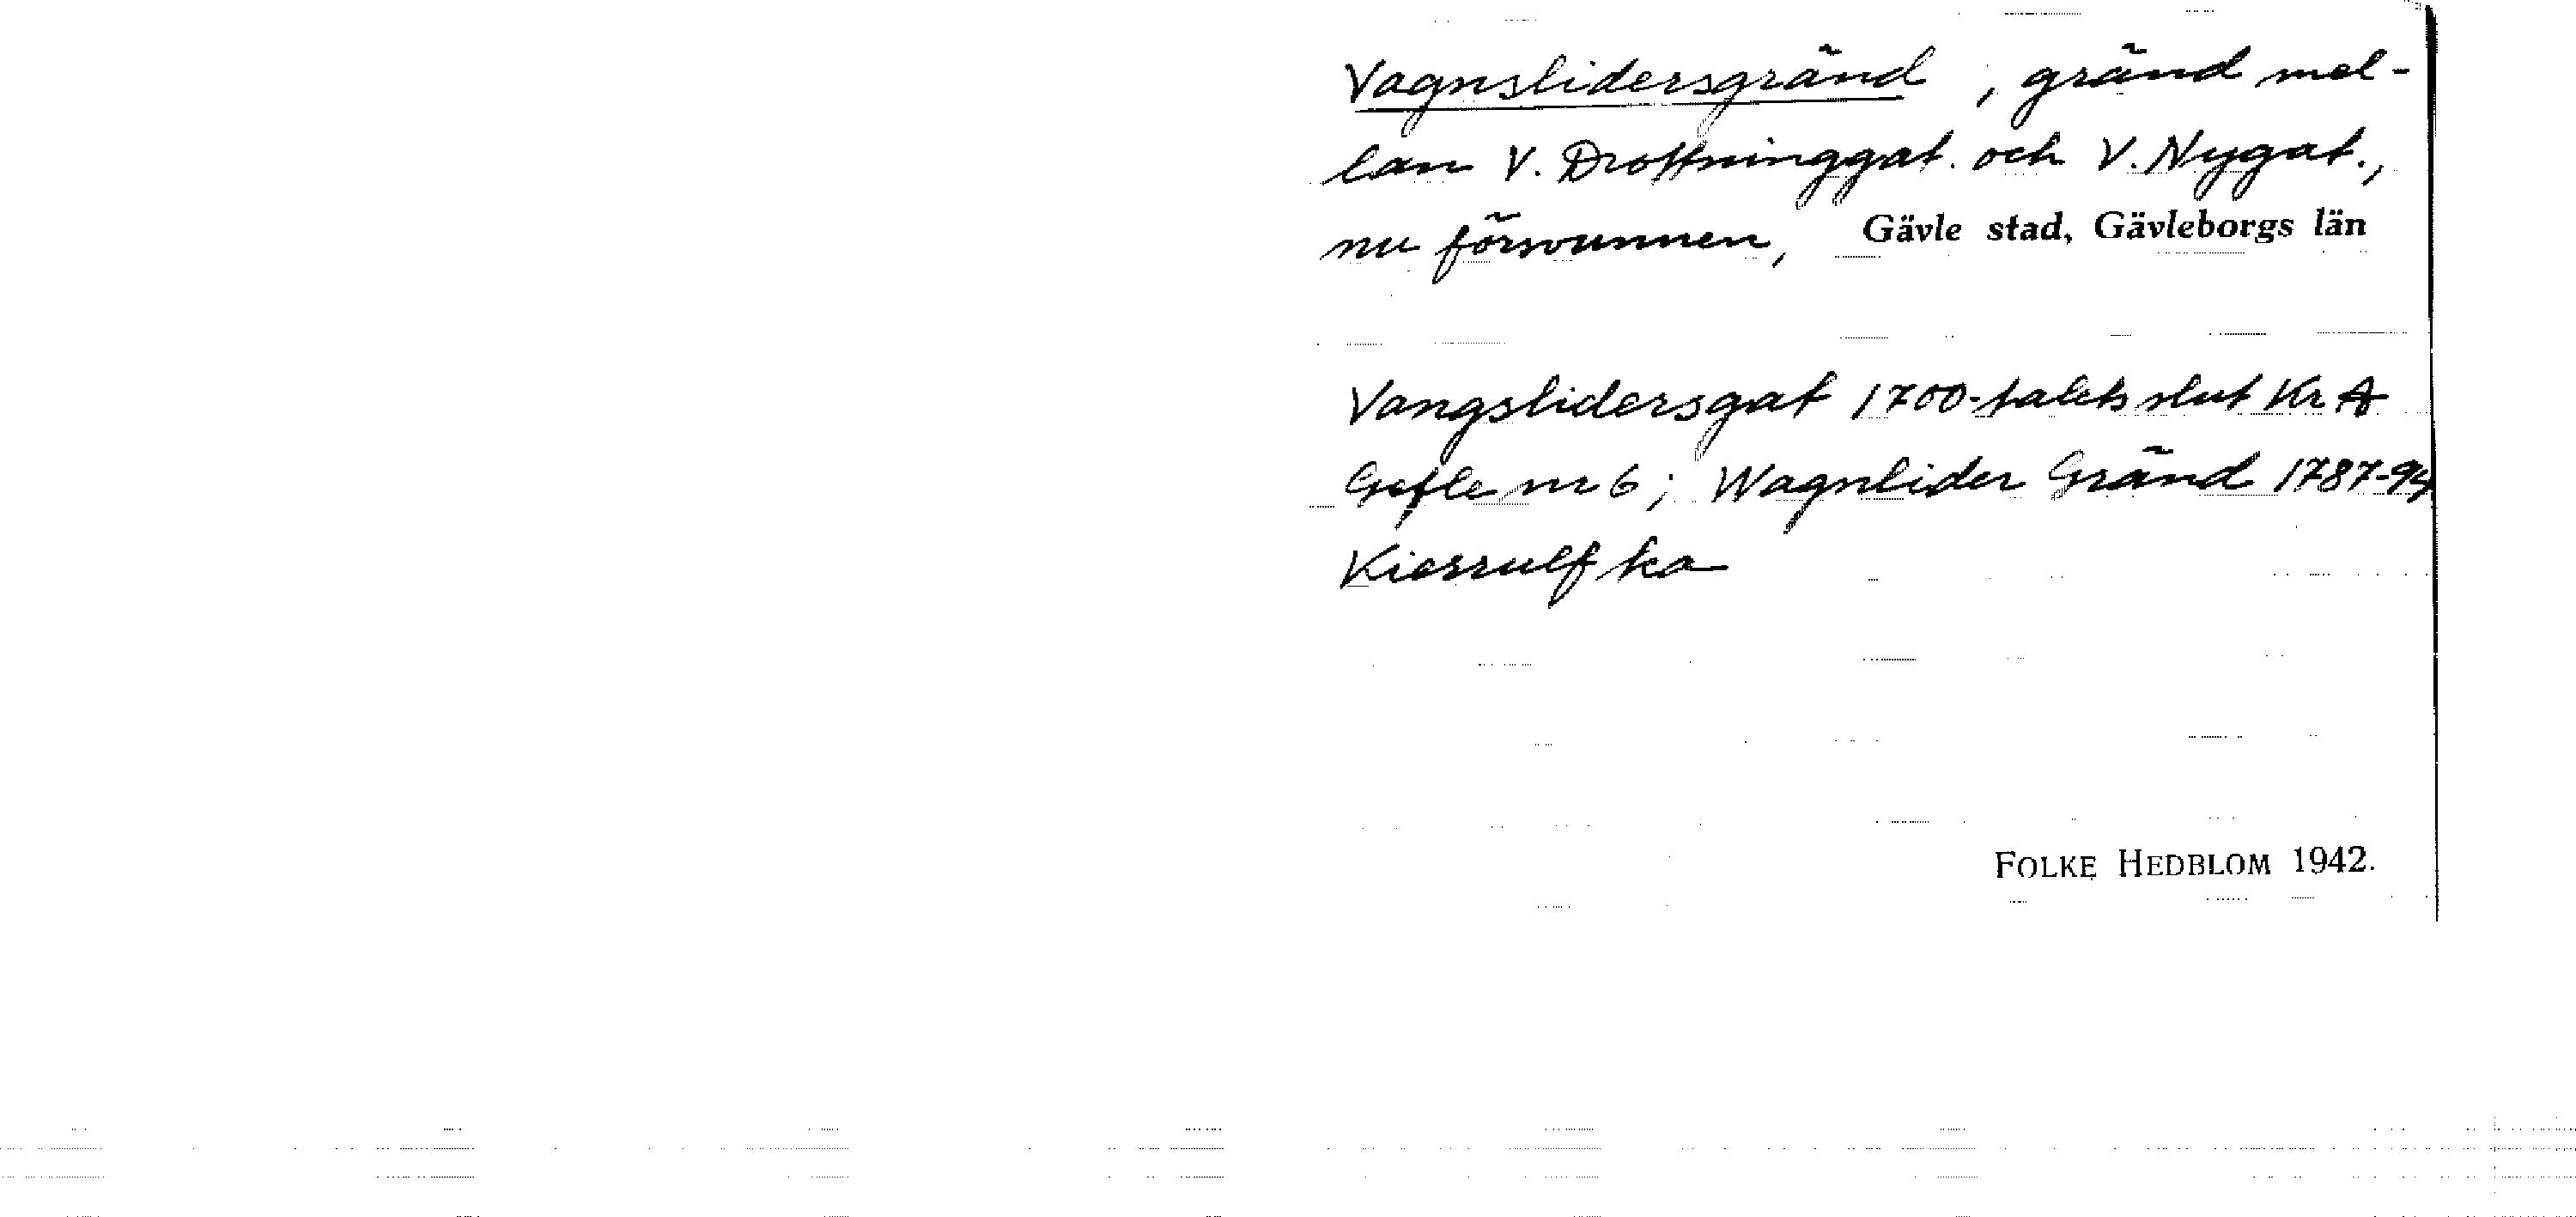 Vagnslidersgränd, gränd mel-
lan V. Drottninggat. och V. Nygat.,
nu försvunnen, Gävle stad, Gävleborgs län
Vangslidersgat 1700-talets slut Kr A
Gefle nr 6; Wagnlider Gränd 1787-94
Kierrulf ka
FOLKE HEDBLOM 1942.